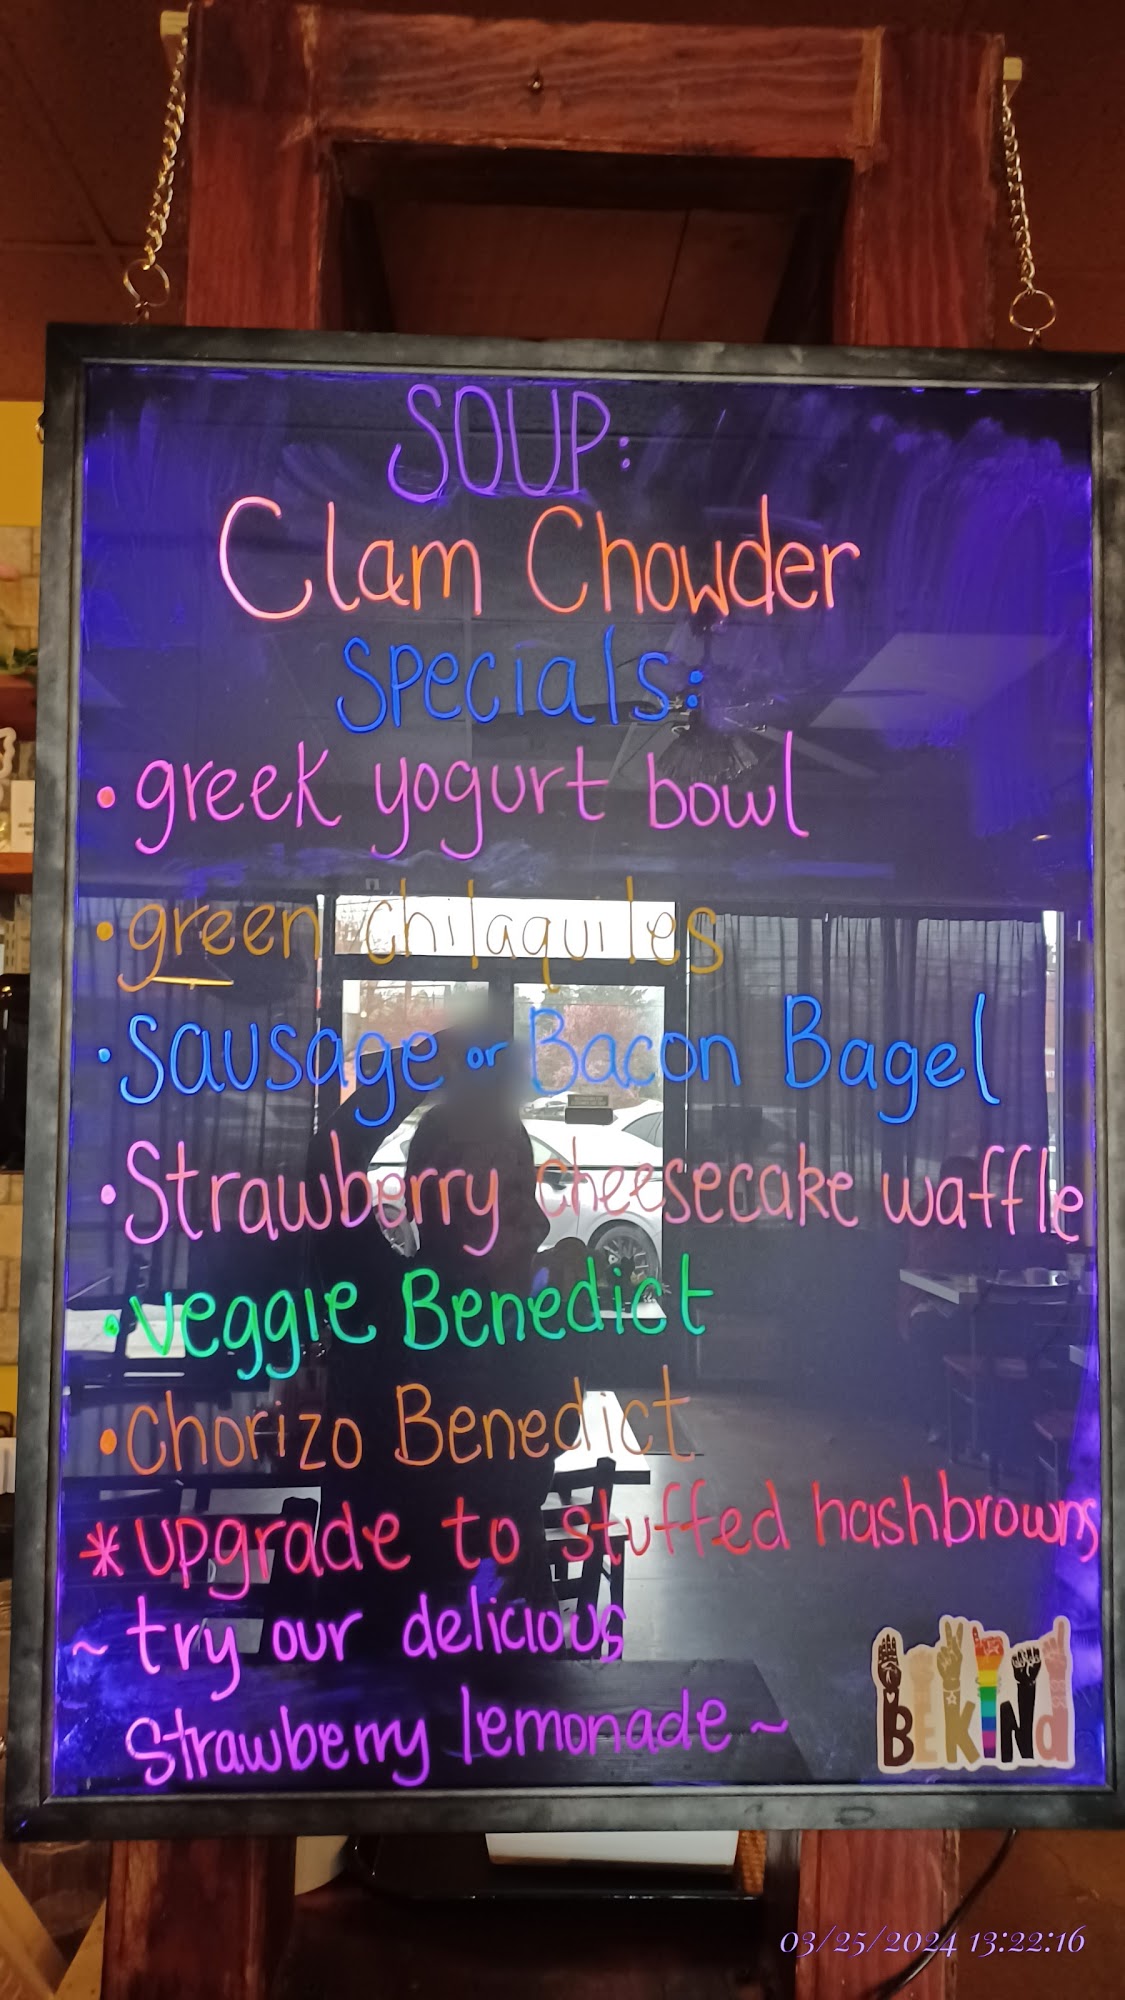 SOUP:
Clam Chowder
Specials:
• greek yogurt bowl
• green chilaquiles
• Sausage or Bacon Bagel
• Strawberry cheesecake waffle
• veggie Benedict
• Chorizo Benedict
* upgrade to stuffed hashbrowns
~ try our delicious
Strawberry lemonade ~
BEKINd
03/25/2024 13:22:16